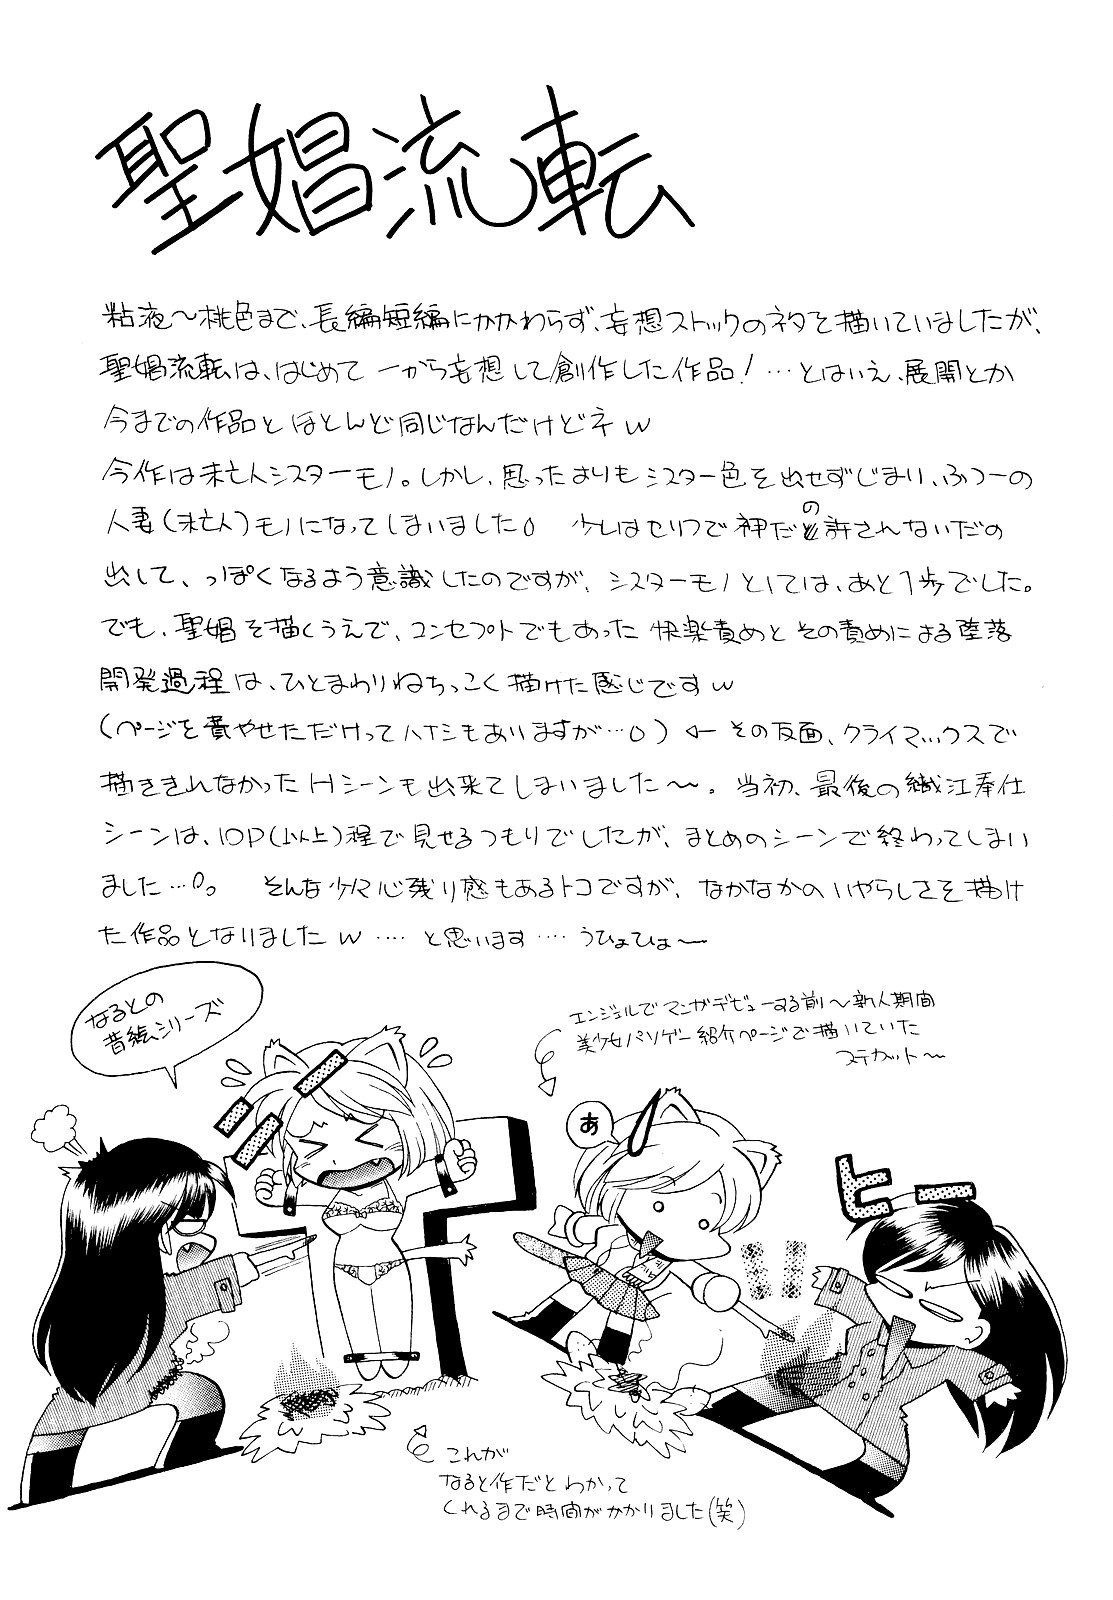 聖娼流転
粘液～桃色まで、長編短編にかかわらず、妄想ストックのネタを描いていましたが、
聖娼流転は、はじめて一から妄想して創作した作品！…とはいえ、展開とか
今までの作品とほとんど同じなんだけどネw
今作は未亡人シスターモノ。しかし、思ったよりもシスター色を出せずじまい、ふつーの
人妻（未亡人）モノになってしまいました 少しはセリフで神だの許されないだの
出して、っぽくなるよう意識したのですが、シスターモノとしては、あと1歩でした。
でも、聖娼を描くうえで、コンセプトでもあった快楽責めとその責めによる堕落
開発過程は、ひとまわりねちっこく描けた感じですw
（ページを費やせただけってハナシもありますが…）← その反面、クライマックスで
描ききれなかったHシーンも出来てしまいました～。当初、最後の織江奉仕
シーンは、10P（以上）程で見せるつもりでしたが、まとめのシーンで終わってしまい
ました… そんな少々心残り感もあるトコですが、なかなかのいやらしさを描け
た作品となりましたw …. と思います …. うひょひょ～
なるとの
昔絵シリーズ
エンジェルでマンガデビューする前～新人期間
美少女パソゲー紹介ページで描いていた
ステカット～
あ
ヒー
これが
なると作だとわかって
くれるまで時間がかかりました（笑）